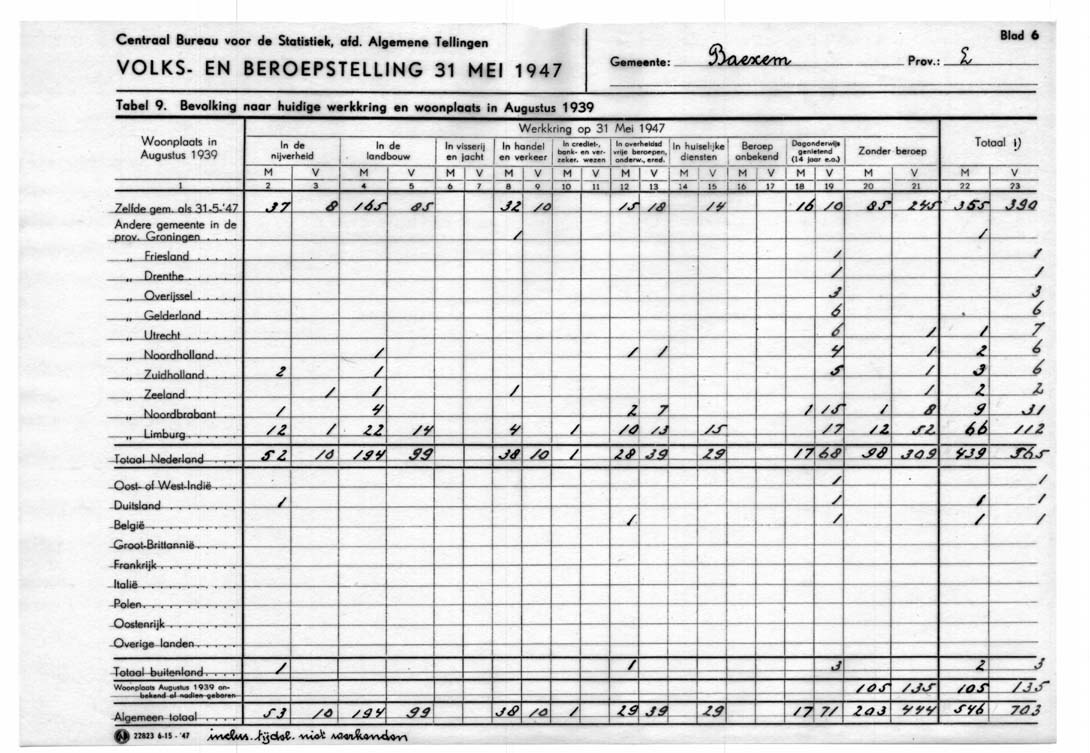 Centraal Bureau voor de Statistiek, afd. Algemene Tellingen
Blad 6
VOLKS- EN BEROEPSTELLING 31 MEI 1947
Gemeente: Baexem Prov.: L
Tabel 9. Bevolking naar huidige werkkring en woonplaats in Augustus 1939
Woonplaats in Augustus 1939
Werkkring op 31 Mei 1947
In de nijverheid
In de landbouw
In visserij en jacht
In handel en verkeer
In crediet-, bank- en verzeker. wezen
In overheidsd vrije beroepen, onderw., ered.
In huiselijke diensten
Beroep onbekend
Dagonderwijs genietend (14 jaar e.o.)
Zonder beroep
Totaal 1)
M V M V M V M V M V M V M V M V M V M V M V
1 2 3 4 5 6 7 8 9 10 11 12 13 14 15 16 17 18 19 20 21 22 23
Zelfde gem. als 31-5-'47 37 8 165 85 32 10 15 18 14 16 10 85 245 355 390
Andere gemeente in de
prov. Groningen . . . . 1 1
„ Friesland . . . . . 1 1
„ Drenthe . . . . . 1 1
„ Overijssel . . . . . 3 3
„ Gelderland . . . . 6 6
„ Utrecht . . . . . 6 1 1 7
„ Noordholland . . . 1 1 1 4 1 2 6
„ Zuidholland . . . . 2 1 5 1 3 6
„ Zeeland . . . . . 1 1 1 1 2 2
„ Noordbrabant 1 4 2 7 1 15 1 8 9 31
„ Limburg . . . . . 12 1 22 14 4 1 10 13 15 17 12 52 66 112
Totaal Nederland . . . 52 10 194 99 38 10 1 28 39 29 17 68 98 309 439 565
Oost- of West-Indië . . . 1 1
Duitsland . . . . . . . 1 1 1 1
België . . . . . . . . 1 1 1 1
Groot-Brittannië . . . .
Frankrijk . . . . . . .
Italië . . . . . . . .
Polen . . . . . . . .
Oostenrijk . . . . . .
Overige landen . . . .
Totaal buitenland . . . . 1 1 3 2 3
Woonplaats Augustus 1939 on-
bekend of nadien geboren 105 135 105 135
Algemeen totaal . . . . 53 10 194 99 38 10 1 29 39 29 17 71 203 444 546 703
22823 6-15 - '47 inclus. tijdel. niet werkenden